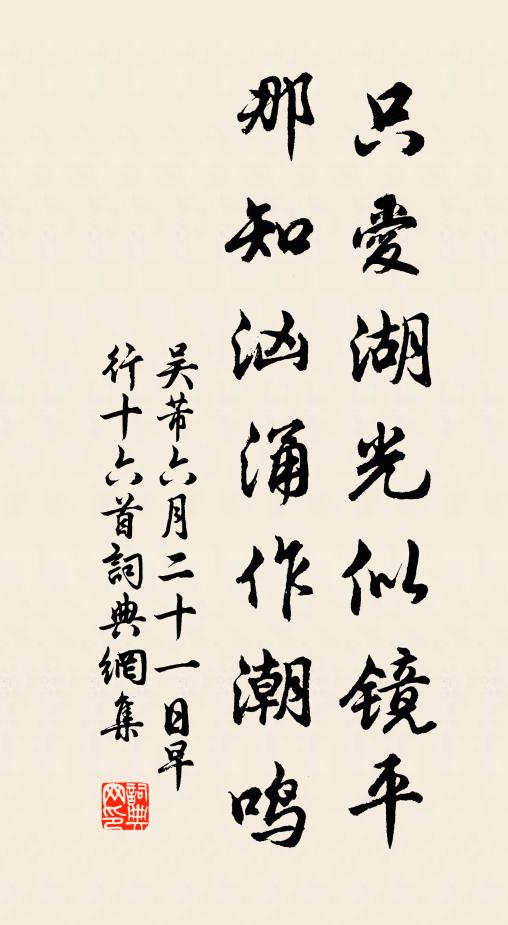 只愛湖光似镜平
那知汹涌作潮鸣
吴芾六月二十一日早
行十六首詞典網集
詞典
网印